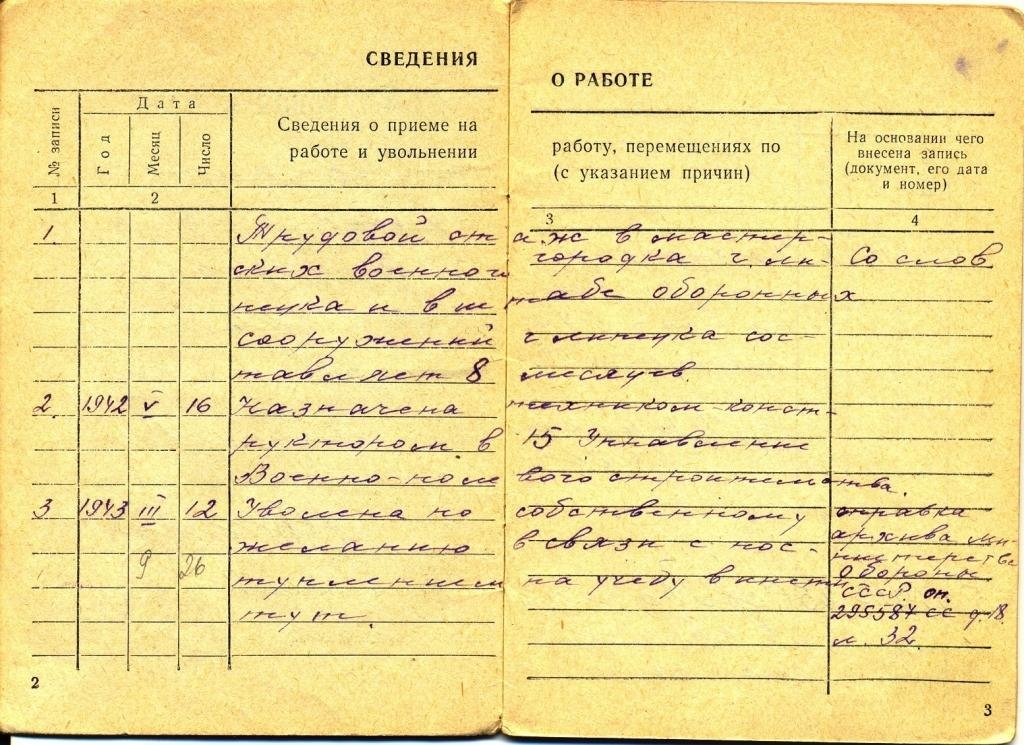 СВЕДЕНИЯ О РАБОТЕ
№ записи
Дата
Год
Месяц
Число
Сведения о приеме на работу, перемещениях по
работе и увольнении (с указанием причин)
На основании чего
внесена запись
(документ, его дата
и номер)
1 2 3 4
1. Трудовой стаж в мастер-
ских военного городка г. Ли- Со слов
пецка и в штабе оборонных
сооружений г. Липецка сос-
тавляет 8 месяцев.
2. 1942 V 16 Назначена техником-конст-
руктором в 15 Управлении
Военно-полевого строительства.
3 1943 III 12 Уволена по собственному справка
желанию в связи с пос- архива Ми-
9 26
нистерства
туплением на учебу в инсти Обороны
тут. СССР. оп.
295587 сс д. 18.
л. 32.
2
3